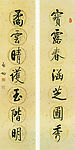 寶露春涵芝圃秀
矞雲晴護玉階明